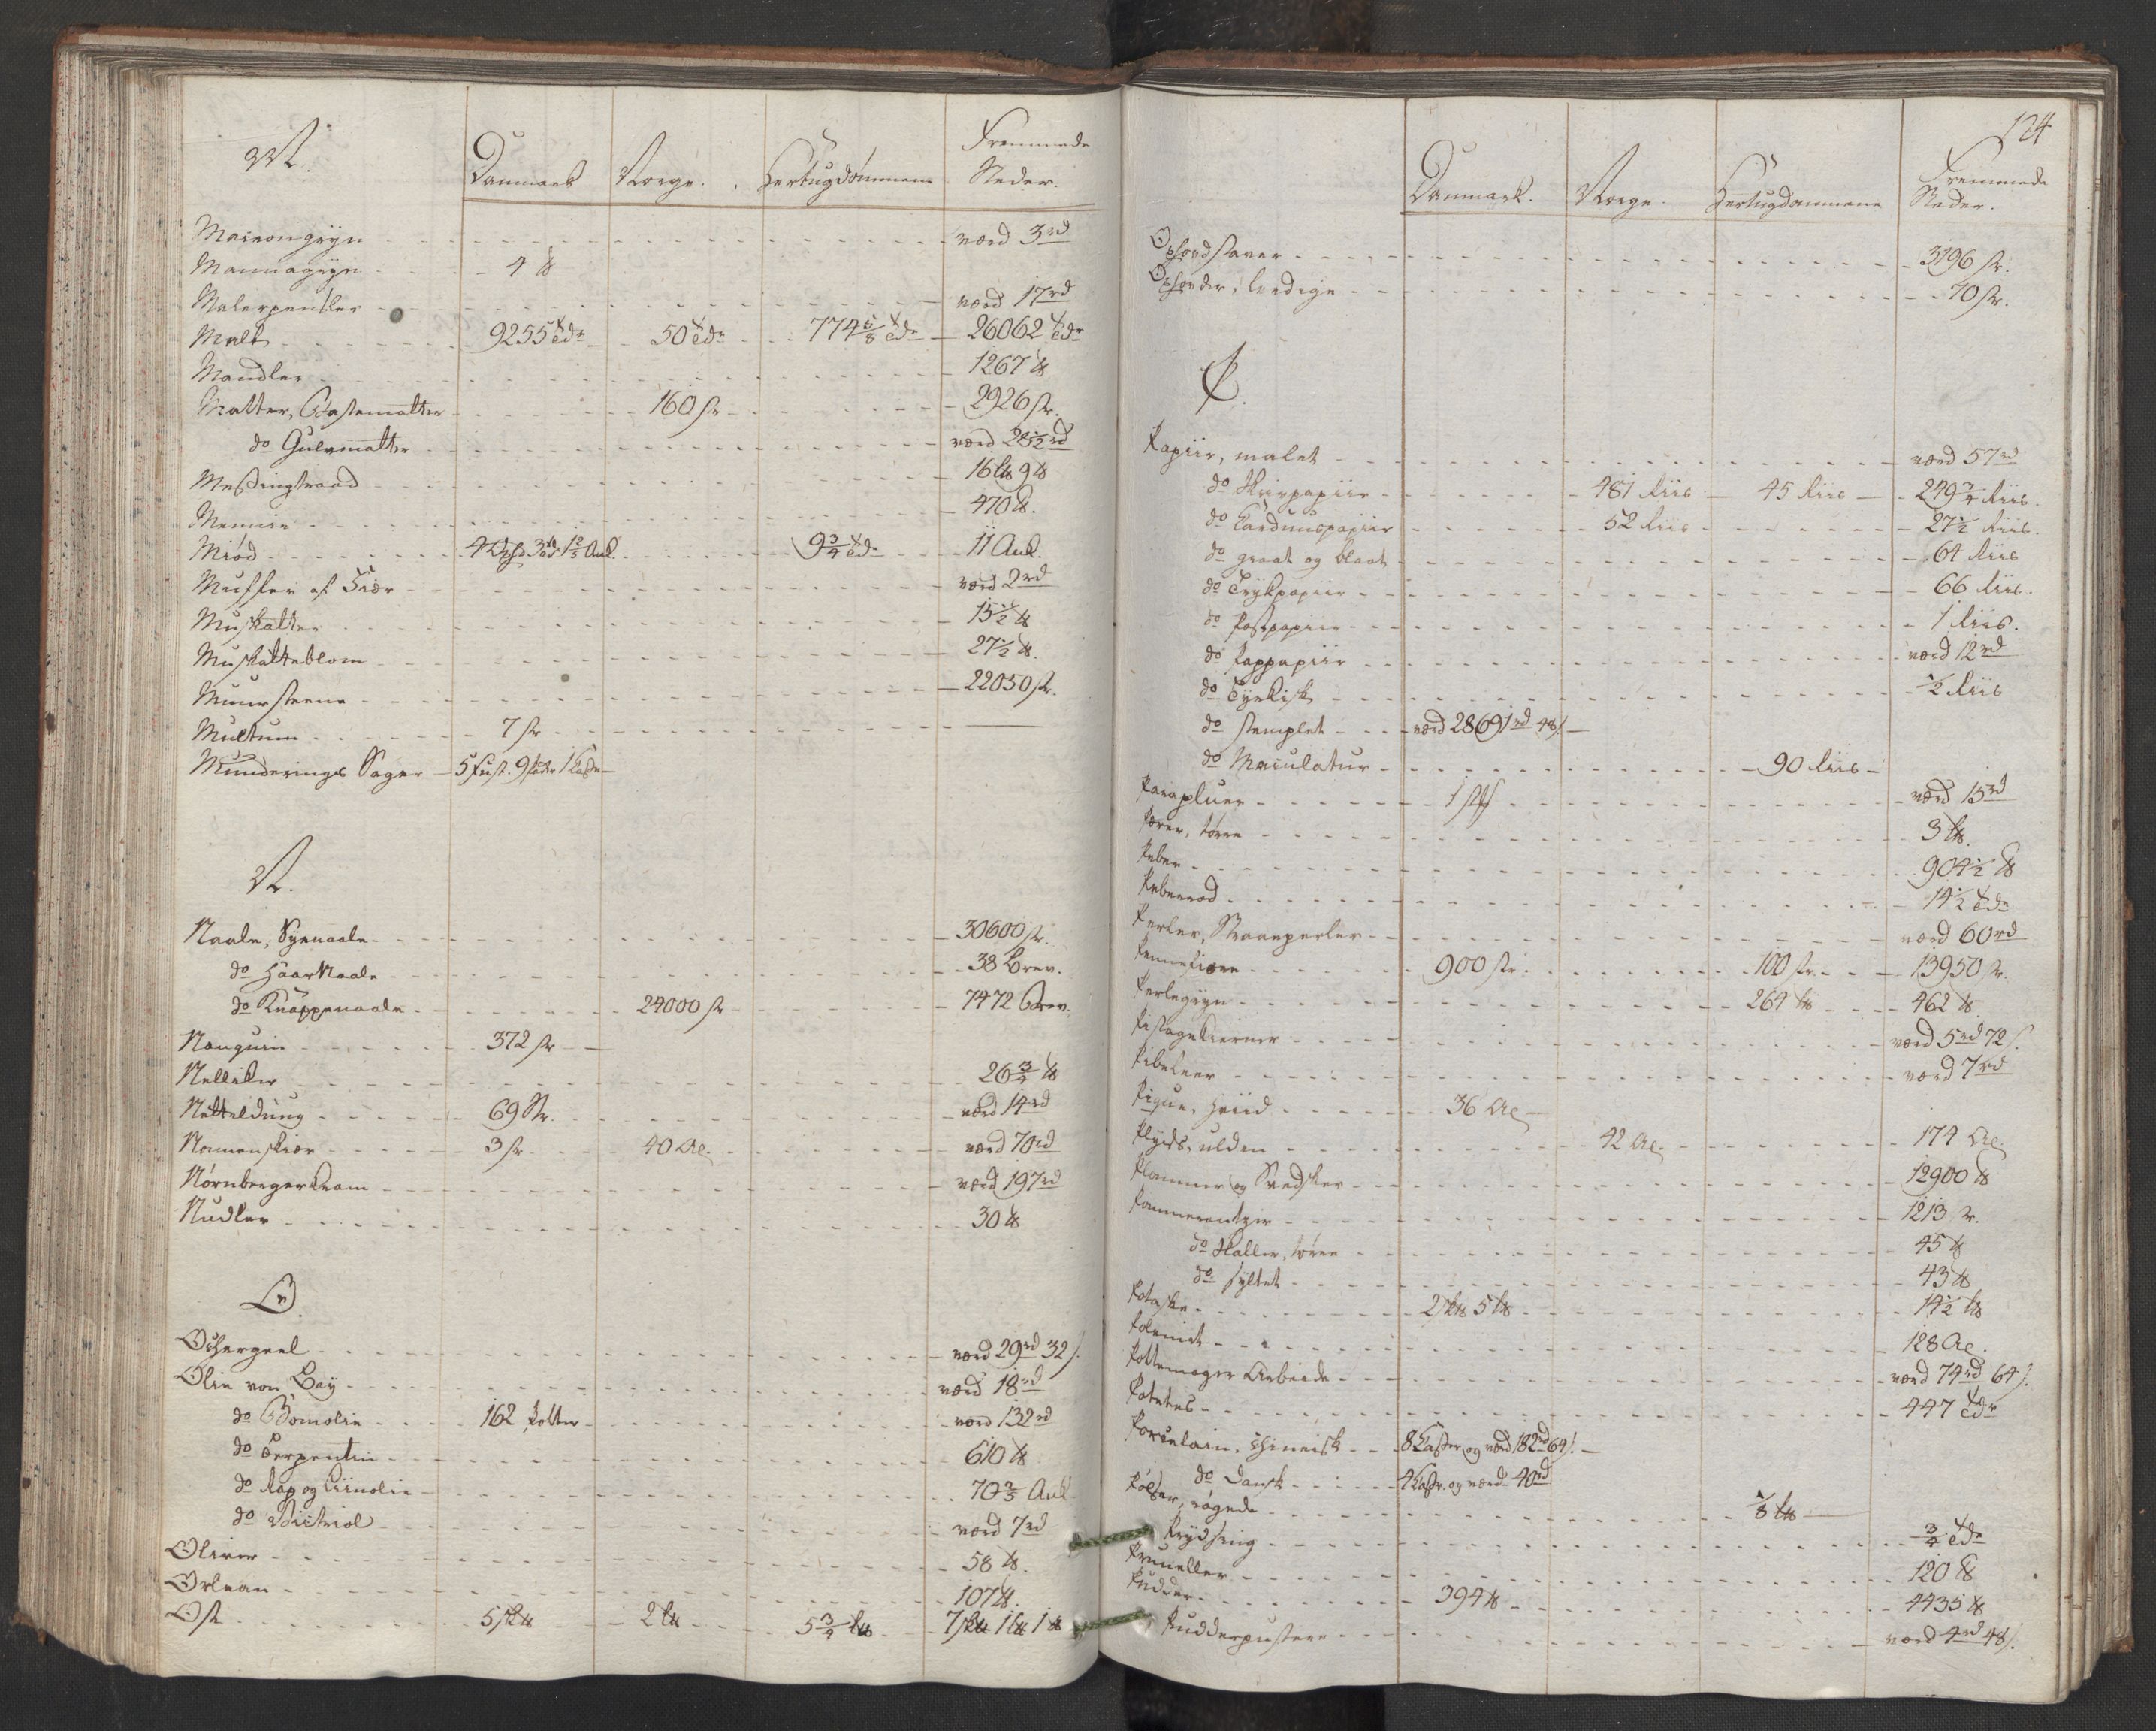 M.
Danmark Norge. Hertugdømmene Fremmede Steder.
værd 3 rd
Mannagryn 4 ℔
Malerpensler værd 17 rd
Malt 9255 Tdr 50 Tdr 774 5/8 Tdr 26062 Tdr
Mandler 1267 ℔
Matter, Bastematter 160 st 2926 st.
do Gulvmatter værd 28 1/2 rd
Messingtraad 16 L℔ 9 ℔
Mennie 470 ℔.
Miød 9 3/4 Td 11 Ank.
Muffer af Fiær værd 2 rd
Muskatter 15 1/2 ℔
Muskatteblom 27 1/2 ℔.
Muursteene 22050 st.
Multum 7 st
Munderings Sager 5 Fust. 9 Pakker 1 Kasse
N.
Naale, Synaale 30600 st.
do Haarnaale 38 Brev.
do Knappenaale 24000 st 7472 Brev.
Nanquin 372 st
Nelliker 26 3/4 ℔
Netteldug 69 St. værd 14 rd
3 st 40 Al. værd 70 rd
Nørnbergerkram værd 197 rd
Nudler 30 ℔
O.
Ochergeel værd 29 rd 32 s.
Olie von Bay værd 18 rd
do Bomolie 162 Potter værd 132 rd
do Terpentin 610 ℔
do Rap og Liinolie 70 Ank
do Victriol værd 7 rd
Oliver 58 ℔.
Orlean 107 ℔.
Ost 5 Sk℔ 2 L℔ 5 3/4 L℔ 7 Sk℔ 1 L℔ 1 ℔
124
Danmark. Norge. Hertugdømmene Fremmede Steder.
Oxhovedstaver 3196 st.
Oxhoveder, ledige 70 st.
P.
Papiir, malet værd 57 rd
do Skrivpapiir 481 Riis 45 Riis 249 3/4 Riis.
do Carduuspapiir 52 Riis 27 1/2 Riis.
do graat og blaat 64 Riis
do Trykpapiir 66 Riis.
do Postpapiir 1 Riis.
do Pappapiir værd 12 rd
do Tyrkisk 1/2 Riis
do stemplet værd 28691 rd 48 s
do Maculatur 90 Riis
Parapluer 1 st værd 15 rd
Pærer, tørre 3 L℔.
Peber 904 1/2 ℔
Peberrod 14 1/2 Td
Perler, Voxperler værd 60 rd
Pennefiære 900 st. 100 st. 13950 st.
Perlegryn 264 ℔ 462 ℔.
Pistagekierner værd 5 rd 72 s.
Pibeleer værd 7 rd
Pique, hviid 36 Al
Plyds, ulden 42 Al. 174 Al.
Plommer og Svedsker 12900 ℔
Pommerantzer 1213 st.
do Skaller, tørre 45 ℔
do syltet 43 ℔
Potaske 2 Sk℔ 5 L℔ 14 1/2 L℔
Polemit 128 Al.
Pottemager Arbeide værd 74 rd 64 s.
Potetes 447 Tdr
Porcelain, chinesisk 8 Kasser og værd 182 rd 64 s.
do Dansk 4 Kasser og værd 40 rd
Pølser, røgede 8 L℔
3/4 Td
Pruneller 120 ℔
Pudder 394 ℔ 4435 ℔
Pudderpustere værd 4 rd 48 s.